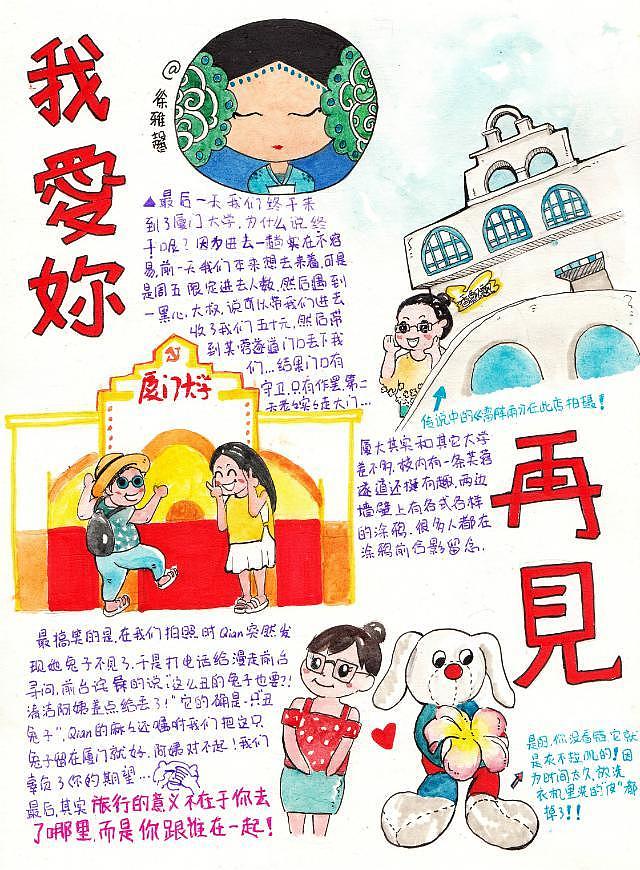 我愛妳
@徐雅馨
▲最后一天我们终于来
到了厦门大学,为什么说终
于呢?因为进去一趟实在不容
易,前一天我们本来想去来着,可是
是周五限定进去人数,然后遇到
一黑心大叔,说可以带我们进去
收了我们五十元,然后带
到芙蓉隧道门口丢下我
们...结果门口有
守卫,只有作罢.第二
天老老实实走大门...
厦门大学
传说中的《 》在此店拍摄!
厦大其实和其它大学
差不多,校内有一条芙蓉
隧道还挺有趣,两边
墙壁上有各式各样
的涂鸦.很多人都在
涂鸦前合影留念.
再見
最搞笑的是,在我们拍照时Qian突然发
现她兔子不见了.于是打电话给漫走前台
寻问,前台诧异的说,"这么丑的兔子也要?!
清洁阿姨差点给丢了!"它的确是一只"丑
兔子",Qian的麻麻还嘱咐我们把这只
兔子留在厦门就好.阿姨对不起!我们
辜负了你的期望...
最后,其实旅行的意义不在于你去
了哪里,而是你跟谁在一起!
是的,你没看错它就
是灰不拉叽的!因
为时间太久,放洗
衣机里来的"皮"都
掉了!!